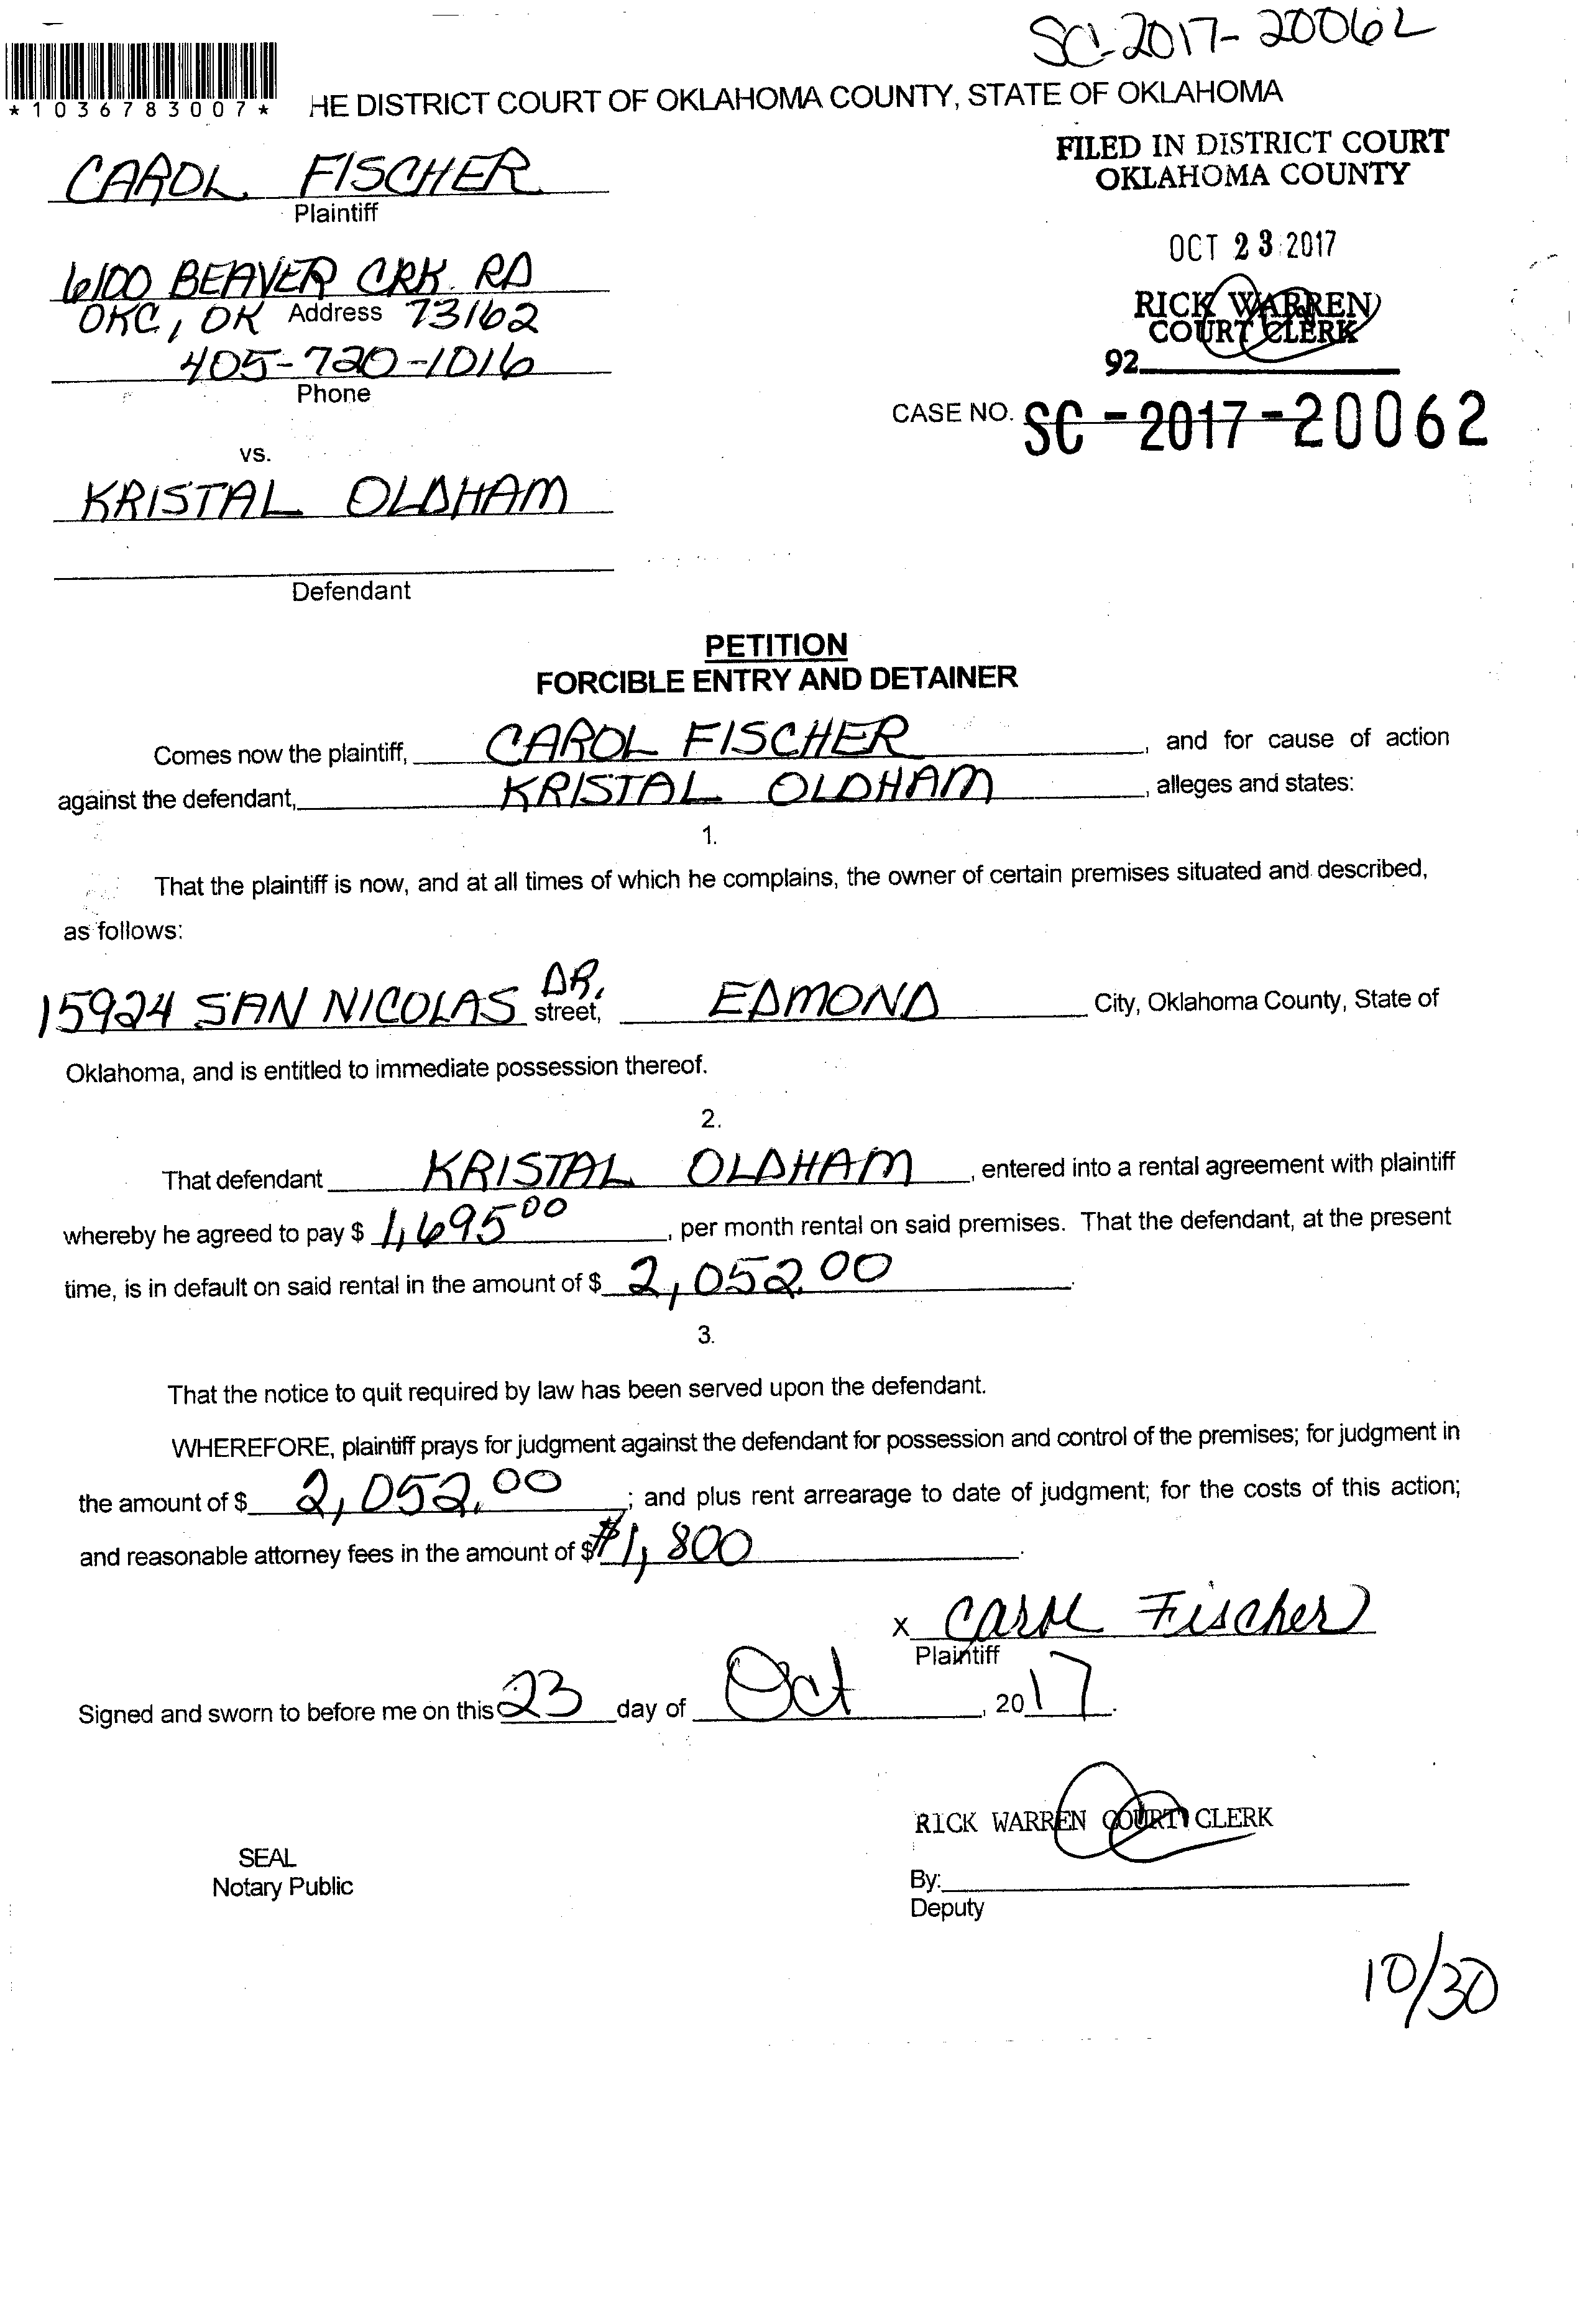 SC-2017-20062
*1036783007*
HE DISTRICT COURT OF OKLAHOMA COUNTY, STATE OF OKLAHOMA
FILED IN DISTRICT COURT
OKLAHOMA COUNTY
CAROL FISCHER
Plaintiff
OCT 23 2017
6100 BEAVER CRK RD
OKC, OK Address 73162
RICK WARREN
COURT CLERK
405-720-1016
92
Phone
CASE NO. SC-2017-20062
vs.
KRISTAL OLDHAM
Defendant
PETITION
FORCIBLE ENTRY AND DETAINER
Comes now the plaintiff, CAROL FISCHER, and for cause of action
against the defendant, KRISTAL OLDHAM, alleges and states:
1.
That the plaintiff is now, and at all times of which he complains, the owner of certain premises situated and described,
as follows:
15924 SAN NICOLAS DR. street, EDMOND City, Oklahoma County, State of
Oklahoma, and is entitled to immediate possession thereof.
2.
That defendant KRISTAL OLDHAM, entered into a rental agreement with plaintiff
whereby he agreed to pay $ 1,695 00, per month rental on said premises. That the defendant, at the present
time, is in default on said rental in the amount of $ 2,052.00.
3.
That the notice to quit required by law has been served upon the defendant.
WHEREFORE, plaintiff prays for judgment against the defendant for possession and control of the premises; for judgment in
the amount of $ 2,052.00; and plus rent arrearage to date of judgment; for the costs of this action;
and reasonable attorney fees in the amount of $ $1,800.
x Carol Fischer
Plaintiff
Signed and sworn to before me on this 23 day of Oct, 2017.
RICK WARREN COURT CLERK
SEAL
Notary Public
By:
Deputy
10/30